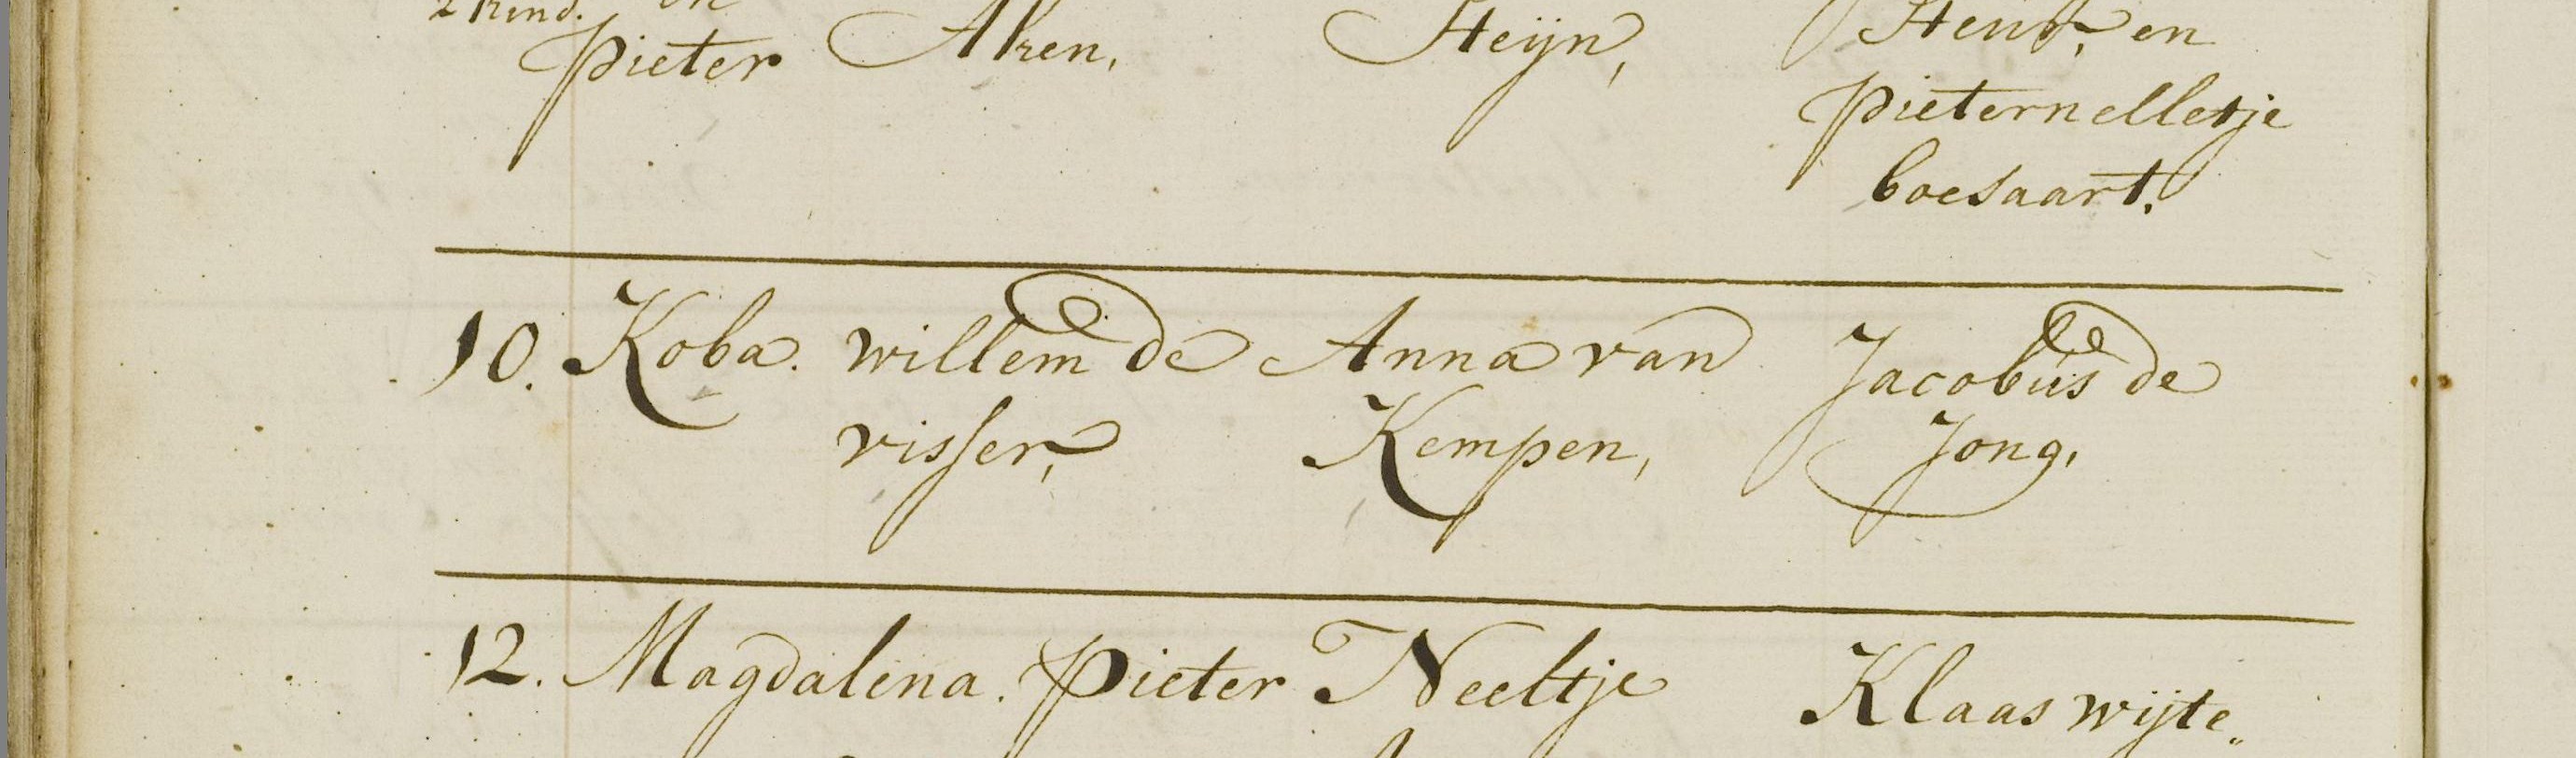 2 kind.
Pieter Aken, Steijn, en
Pieternelletje
boesaart.
10. Koba. willem de Anna van Jacobus de
visser, Kempen, Jong,
12. Magdalena. Pieter Neeltje Klaas wijte„